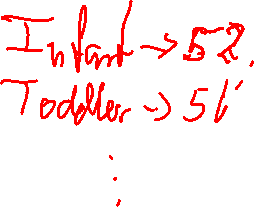 Infant → 52.
Toddler → 51
⋮